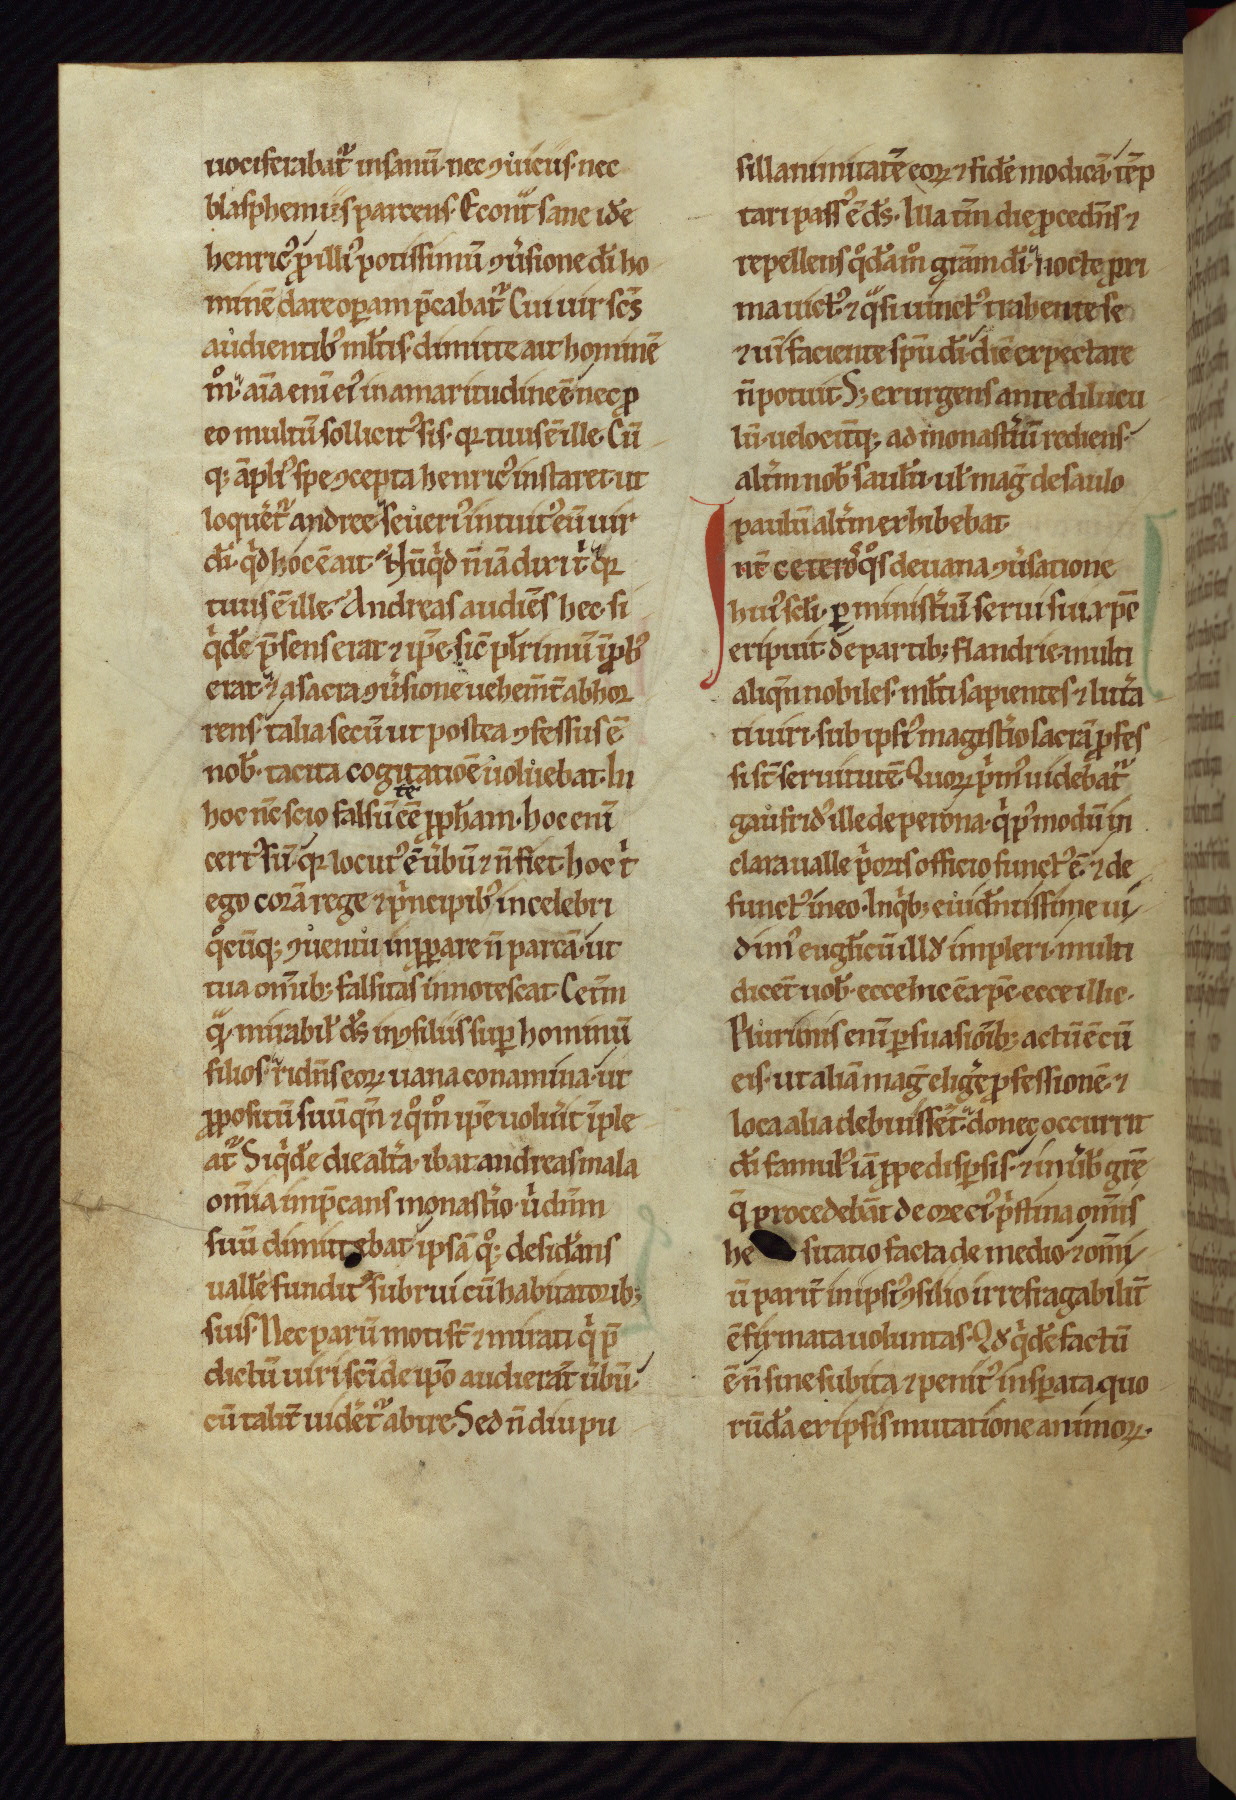 uociferabat᷑ insanū· nec ꝯuiciis· nec
blasphemiis parcens· Econt̄ sane idē
henric᷒ ꝓ illi᷒ potissimū ꝯūsione dī ho
minē dare oꝑam p̄cabat᷑ Cui uir sc̄s
audientib᷒ ml̄tis· dimitte ait hominē
m̊· aīa enī ei᷒ in amaritudine ē· nec ꝓ
eo multū sollicit᷒ sis· qr̄ tuus ē ille· Cū
q; āpli᷒ spe ꝯcepta henric᷒ instaret· ut
loquēt᷑ andree· Seueri᷒ intuit᷒ eū uir
dī· qͥd hoc ē ait· Nūqͥd n̄ iā dixi tͥ qr̄
tuus ē ille· Andreas audiēs hec· si
qͥdē p̄sens erat ⁊ ip̄e· sic pl̄rimū īprob᷒
erat· ⁊ a sacra ꝯūsione uehem̄t abhor
rens· talia secū ut postea ꝯfessus ē
nob̄· tacita cogitatiōe uoluebat· In
hoc nc̄ scio falsū te ēe ꝓph̄am· hoc enī
cert᷒ sū· qr̄ locut᷒ ē ūbū ⁊ n̄ fiet· hoc tͥ
ego corā rege ⁊ pͥncipib᷒ in celebri
q̊cūq; ꝯuentu inꝓꝑare n̄ parcā· ut
tua om̄ib; falsitas innotescat· Cet̄m
qͣ· mirabil̄ ds̄ in ꝯsiliis suꝑ hominū
filios· ridn̄s eoꝝ uana conamina· ut
ꝓpositū suū qn̄ ⁊ q̊m̊ ip̄e uoluit īple
at᷑ Siqͥdē die alt̄a· ibat andreas mala
om̄ia imp̄cans monast̄io· ū dn̄m
suū dimittebat· ipsā q̊; desid̄ans
uallē fundit᷒ subrui cū habitatorib;
suis· Nec parū moti st̄ ⁊ mirati qͥ p̄
dictū uiri sc̄i de ip̄o audierāt ūbū·
cū talit̄ uidēt᷑ abire· Sed n̄ diu pu
sillanimitatē eoꝝ ⁊ fidē modicā· tēp
tari pass᷒ ē ds̄· Illa tn̄ die p̄cedn̄s ⁊
repellens q̊dām̊ gr̄am dī· nocte ꝓxi
ma uict᷒· ⁊ qͣsi uinct᷒ trahente se
⁊ uī faciente spū dī· diē expectare
n̄ potuit· S; exurgens ante dilucu
lū· uelocit̄q; ad monast̄iū rediens·
alt̄m nob̄ saulū· ul̄ maḡ de saulo
paulū alt̄m exhibebat·
Int̄ ceteros q̊s de uana ꝯūsatione
hui᷒ scl̄i· ꝑ minist̄iū serui sui xp̄c
eripuit· de partib; flandrie· multi
aliqn̄ nobiles· ml̄ti sapientes ⁊ litt̄a
ti uiri· sub ipsi᷒ magist̄io sacrā ꝓfes
si st̄ seruitutē· Quoꝝ pͥm᷒ uidebat᷑
gaufrid᷒ ille de perona· qͥ p᷒ modū in
claraualle p̄oris officio funct᷒ ē· ⁊ de
funct᷒ in eo· In qͥb; euidn̄tissime ui
dim᷒ eugl̄icū illd̄ impleri· multi
dicēt uob̄· ecce hic ē xp̄c· ecce illic·
Plurimis enī ꝑsuasiōib; actū ē cū
eis· ut aliā maḡ eliḡe ꝓfessionē· ⁊
loca alia debuissēt· donec occurrit
dī famul᷒ iā ꝓpe disꝑsis· ⁊ in ūb̄ gr̄e
q̄ procedebāt de ore ei᷒· pͥstina om̄is
he sitatio facta de medio· ⁊ om̄i
ū parit̄ in ipsi᷒ ꝯsilio irrefragabilit̄
ē firmata uoluntas· Qd̄ qͥdē factū
ē· n̄ sine subita ⁊ penit᷒ insꝑata quo
rūdā ex ipsis mutatione animoꝝ·